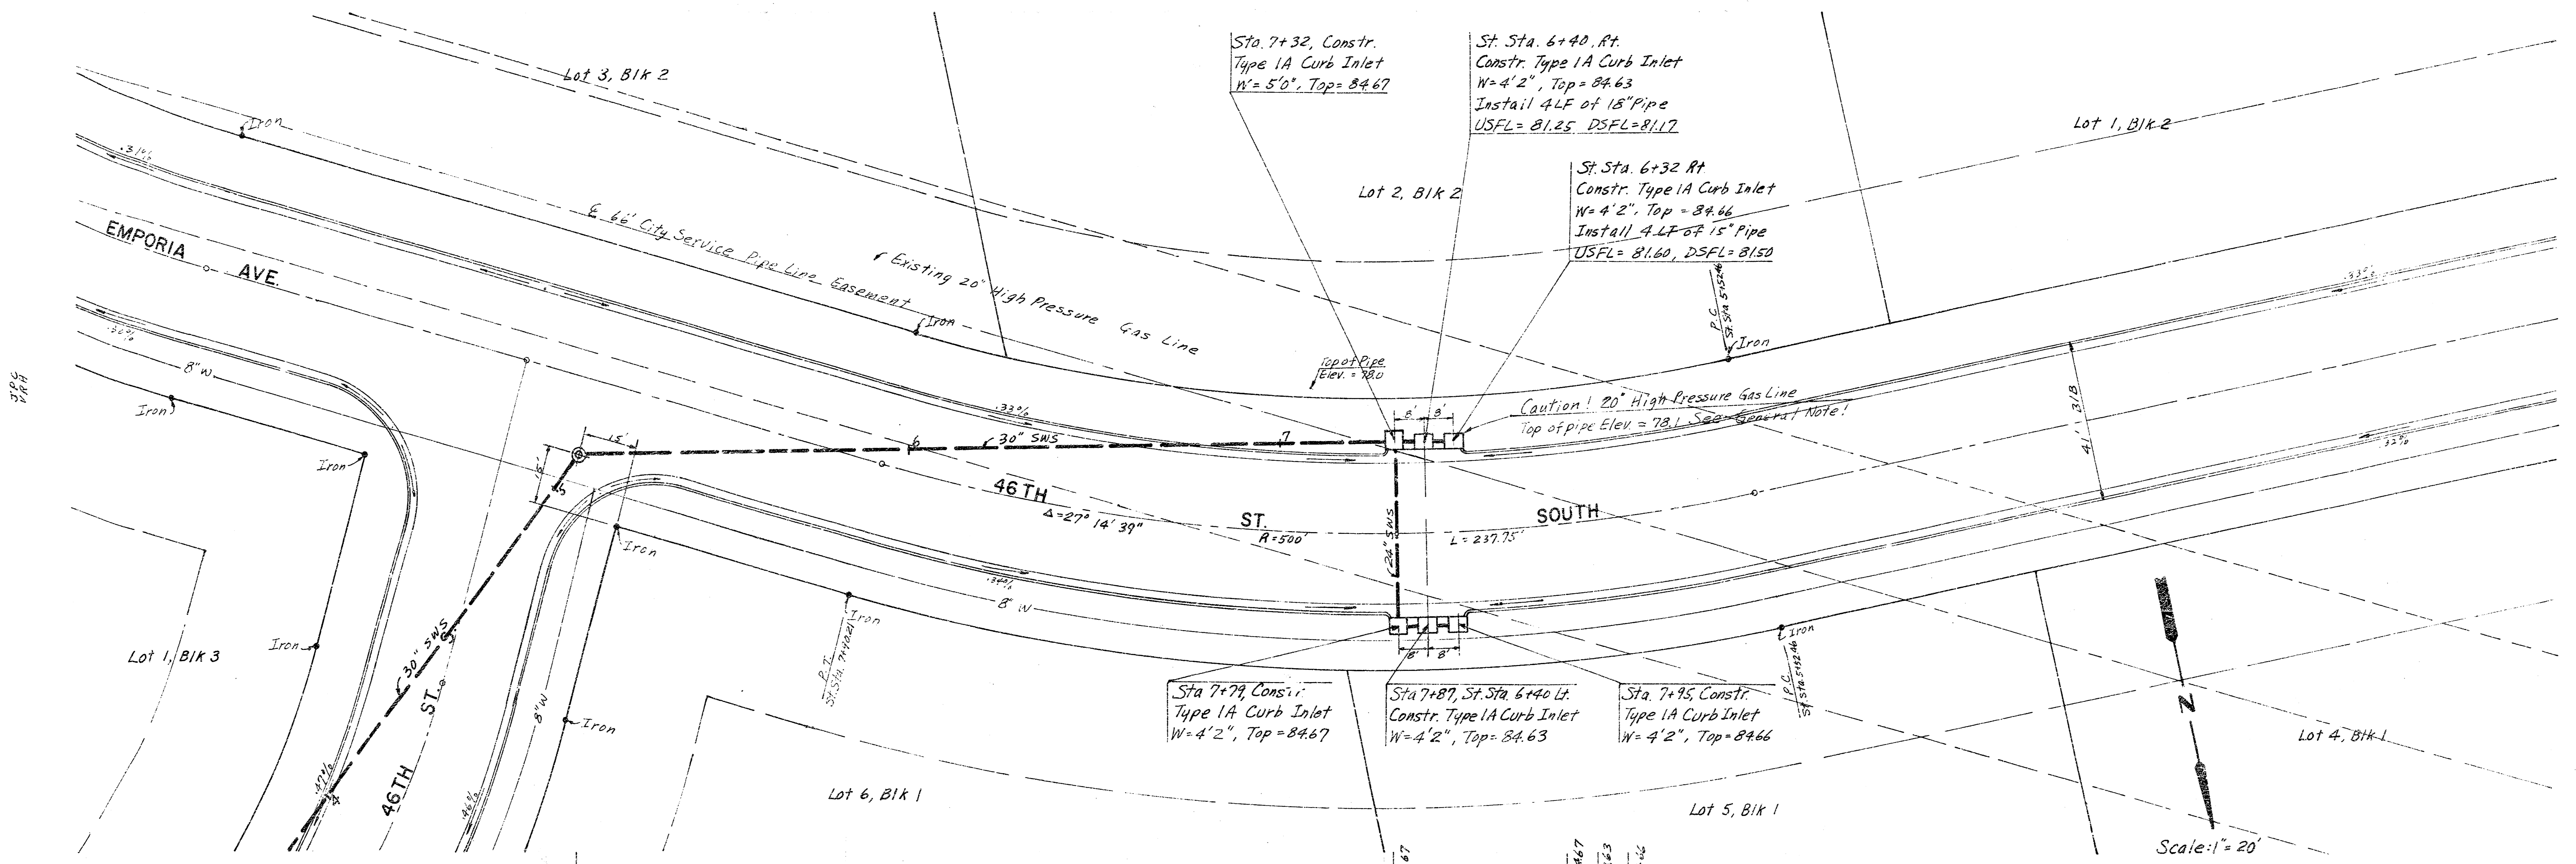 Sta. 7+32, Constr.
Type 1A Curb Inlet
W= 5'0", Top= 84.67
St. Sta. 6+40, Rt.
Constr. Type 1A Curb Inlet
W= 4'2", Top= 84.63
Install 4 LF of 18" Pipe
USFL= 81.25 DSFL=81.17
St. Sta. 6+32 Rt.
Constr. Type 1A Curb Inlet
W= 4'2", Top = 84.66
Install 4 LF of 15" Pipe
USFL= 81.60, DSFL= 81.50
Lot 3, Blk 2
Lot 2, Blk 2
Lot 1, Blk 2
Iron
.31%
EMPORIA AVE.
℄ 66' City Service Pipe Line Easement
Existing 20" High Pressure Gas Line
Iron
P.C.
St. Sta 5+52.46
Iron
.33%
.30%
8" W
Iron
Top of Pipe
Elev. = 78.0
8' 8'
Caution! 20" High Pressure Gas Line
Top of pipe Elev. = 78.1 See General Note!
41' B/B
.32%
JPG
VRH
.33%
15'
6
30" SWS
7
Iron
15'
5
46TH ST. SOUTH
Δ=27° 14' 39"
R=500'
L= 237.75'
24" SWS
Iron
.34%
8" W
Iron
P.T.
St. Sta. 7+90.21
8' 8'
Iron
P.C.
St. Sta 5+52.46
Lot 1, Blk 3
Iron
30" SWS
46TH ST.
8" W
Iron
.47%
4
.46%
Sta 7+79, Constr.
Type 1A Curb Inlet
W= 4'2", Top= 84.67
Sta 7+87, St. Sta. 6+40 Lt.
Constr. Type 1A Curb Inlet
W= 4'2", Top= 84.63
Sta. 7+95, Constr.
Type 1A Curb Inlet
W= 4'2", Top= 84.66
Lot 6, Blk 1
Lot 5, Blk 1
Lot 4, Blk 1
N
Scale: 1" = 20'
67
63
66